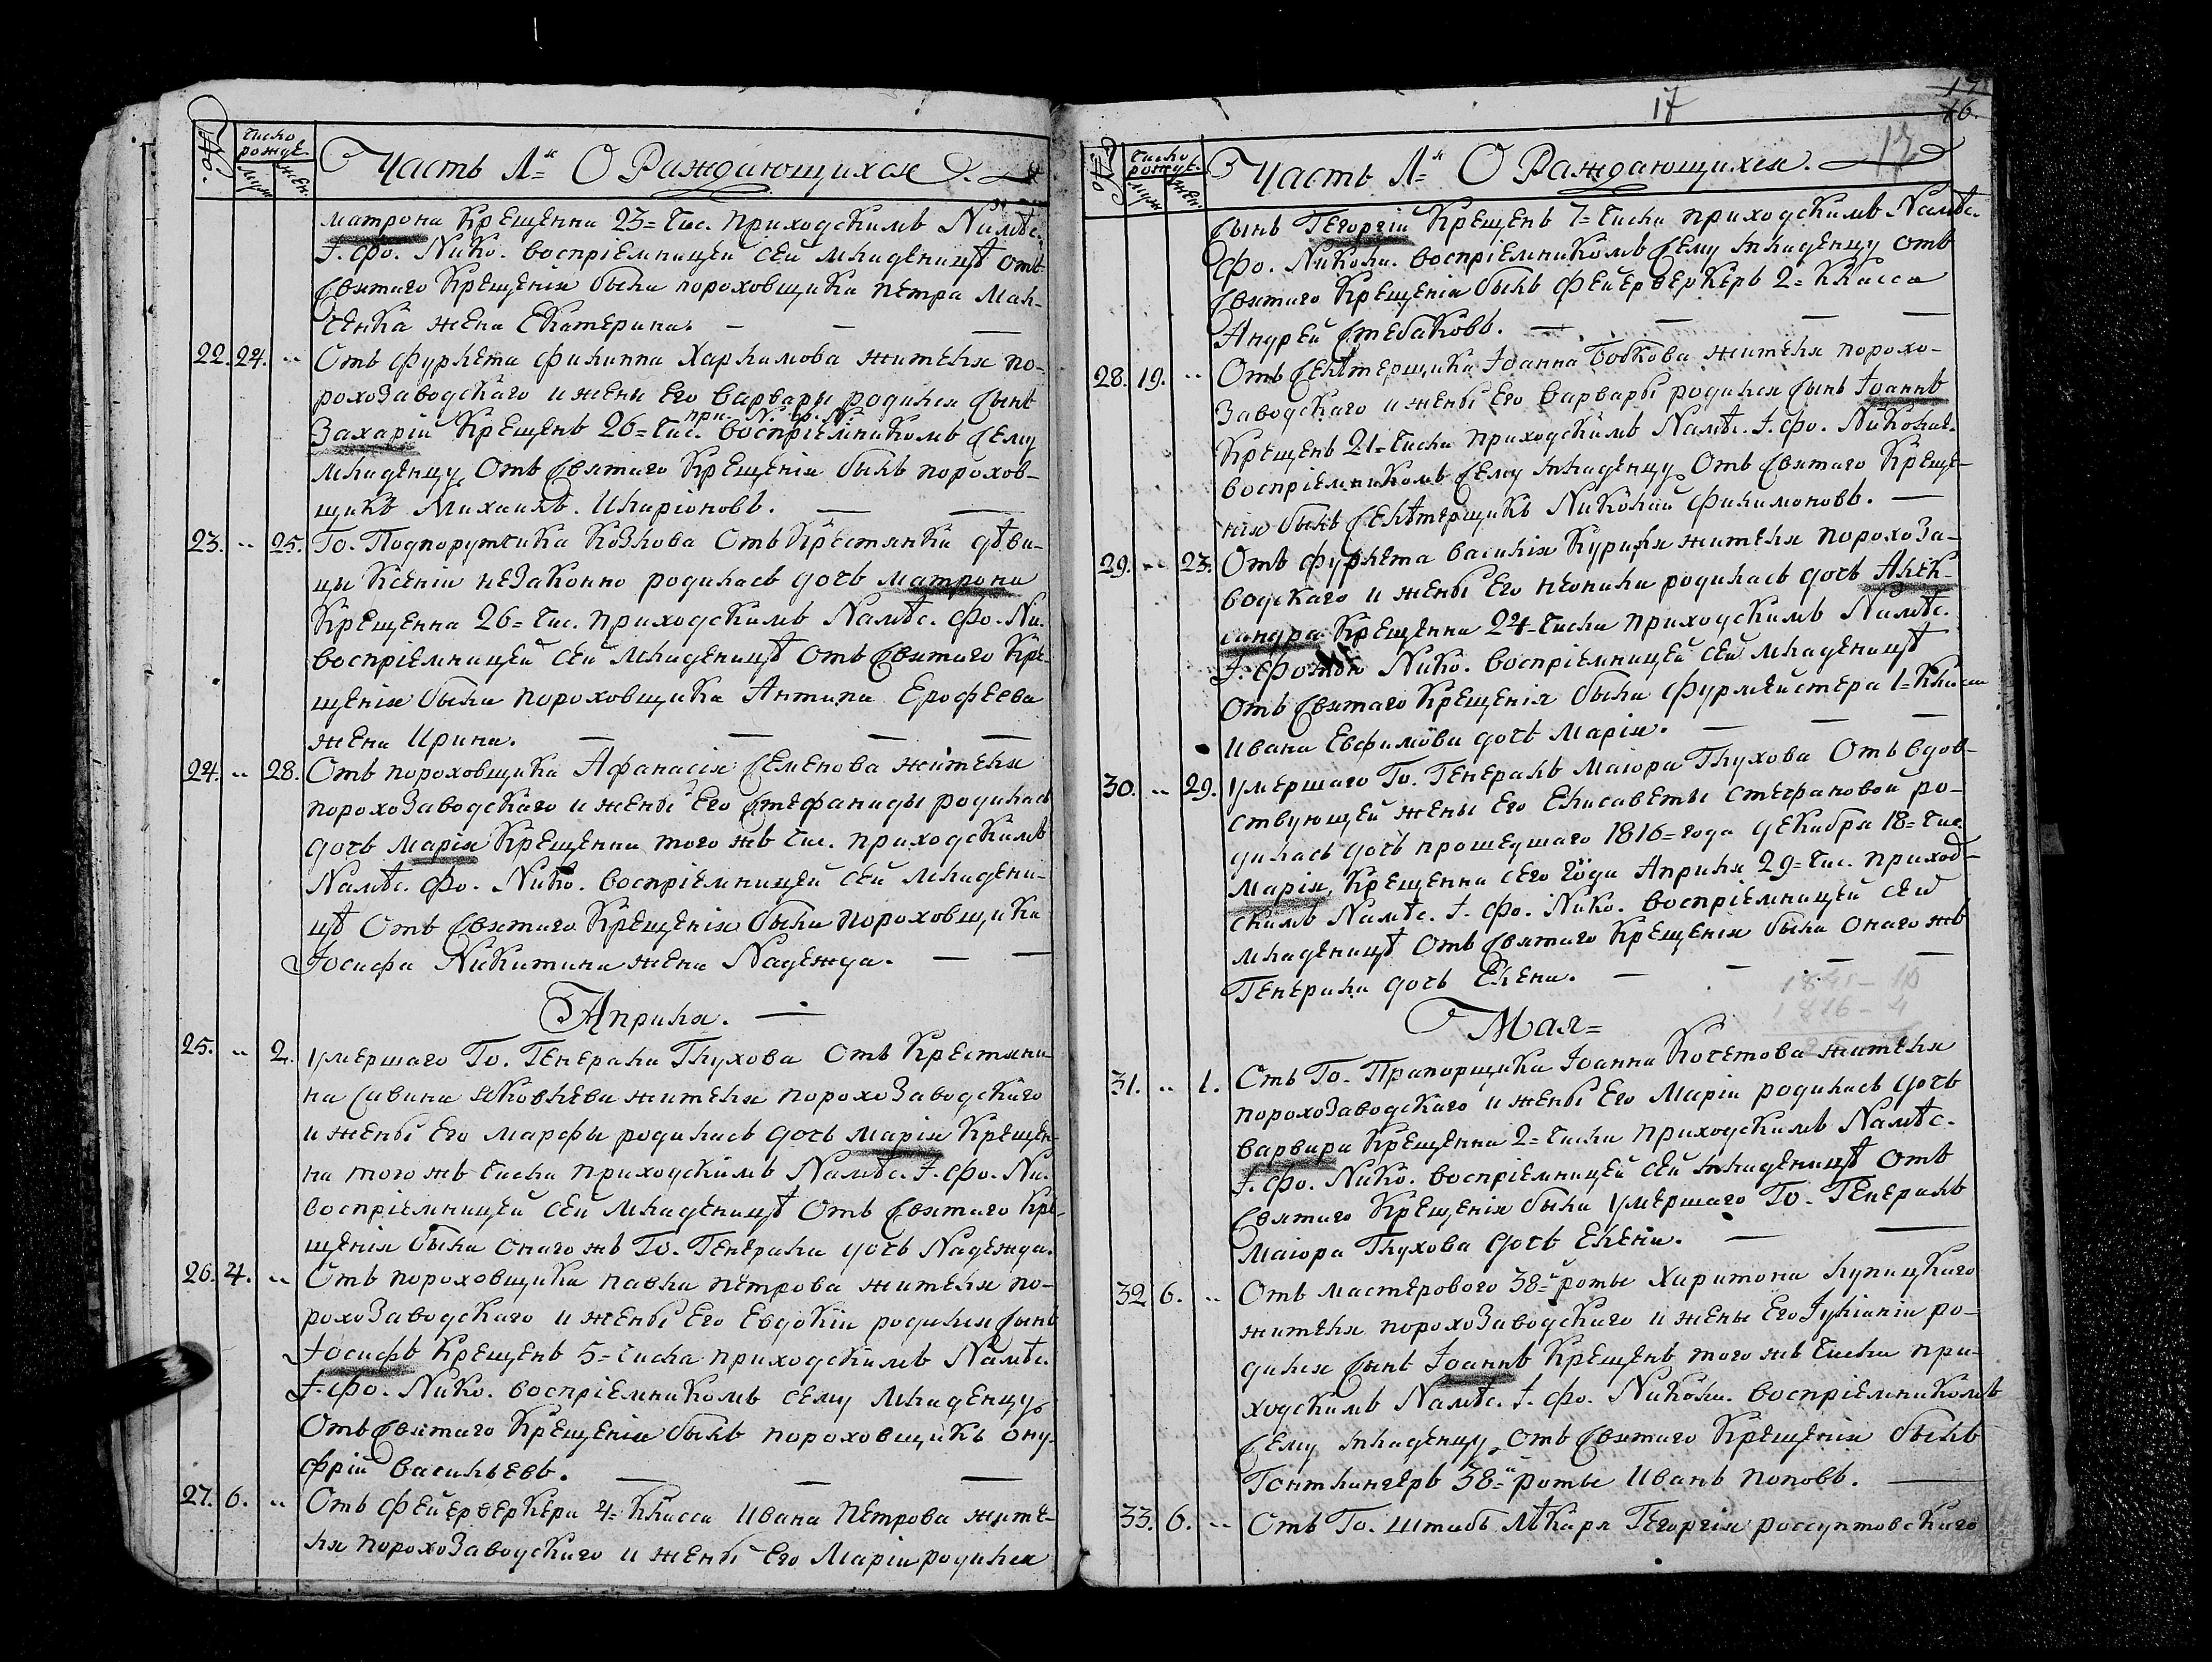 №.
число рожде.
муж. жен.
Часть 1.я О Раждающихся
матрона крещенна 23= чис. приходскимъ Намѣс.
І. Фо. Нико. воспріемницей сей младеницѣ отъ
Святаго Крещенія была пороховщика петра Мак-
сенка жена Екатерина.
22. 24. „ Отъ фурлета филиппа Харламова жителя по-
роховаводскаго и жены его варвары родился сынъ
при. N. Фо. Ni.
Захарій Крещенъ 26= чис. воспріемникомъ сему
младенцу Отъ Святаго Крещенія былъ порохов-
щикъ Михаилъ Иларіоновъ.
23. „ 25. Го. Подпорутчика Козлова Отъ крестьянки дѣви-
цы Ксеніи незаконно родилась дочь матрона
Крещенна 26= чис. приходскимъ Намѣс. Фо. Ни.
воспріемницей сей младеницѣ Отъ Святаго Кре-
щенія была пороховщика Антипа Ерофеева
жена Ирина.
24. „ 28. Отъ пороховщика Афанасія Семенова жителя
пороховаводскаго и жены Его Стефаниды родилась
дочь Марія Крещенна того жъ чис. приходскимъ
Намѣс. Фо. Нико. воспріемницей сей младени-
цѣ Отъ Святаго Крещенія была пороховщика
Іосифа Никитина жена Надежда.
Апріля.
25. „ 2. умершаго Го. Генерала Глухова Отъ Крестьяни-
на Савина Яковлева жителя пороховаводскаго
и жены Его Марфы родилась дочь Марія Крещен-
на того жъ числа приходскимъ Намѣс. І. Фо. Ни.
воспріемницей сей младеницѣ Отъ Святаго Кре-
щенія была онаго жъ Го. Генерала дочь Надежда.
26. 4. „ Отъ пороховщика павла петрова жителя по-
роховаводскаго и жены Его Евдокіи родился сынъ
Іосифъ Крещенъ 5= числа приходскимъ Намѣс.
І. Фо. Нико. воспріемникомъ сему младенцу
Отъ Святаго Крещенія былъ пороховщикъ ону-
фрій васильевъ.
27. 6. „ Отъ фейерверкера 4= класса Ивана Петрова жите-
ля пороховаводскаго и жены Его Маріи родился
17
17
16.
17
№.
число рожде.
муж. жен.
Часть 1.я О Раждающихся.
сынъ Георгій Крещенъ 7= числа приходскимъ Намѣс.
Фо. Никола. воспріемникомъ сему младенцу отъ
Святаго Крещенія былъ Фейерверкеръ 2= класса
Андрей Стебаковъ.
28. 19. „ Отъ Селѣтерщика Іоанна Бобкова жителя порохо-
заводскаго и жены Его варвары родился сынъ Іоаннъ
Крещенъ 21= числа приходскимъ Намѣс. І. Фо. Николае.
воспріемникомъ сему младенцу Отъ Святаго Креще-
нія былъ Селѣтерщикъ Николай Филимоновъ.
29. „ 23. Отъ фурлета василія Куриля жителя порохоза-
водскаго и жены Его неонилы родилась дочь Алек-
сандра Крещенна 24= числа приходскимъ Намѣс.
І. Фомою Нико. воспріемницей сей младеницѣ
Отъ Святаго Крещенія была фурмейстера 1= класса
Ивана Евфимова дочь Марія.
30. „ 29. Умершаго Го. Генералъ Маіора Глухова Отъ вдов-
ствующей жены Его Елисаветы Стефановой ро-
дилась дочь прошедшаго 1816= года декабря 18= чис.
Марія, Крещенна сего года Апріля 29= чис. приход-
скимъ Намѣс. І. Фо. Нико. воспріемницей сей
младеницѣ Отъ Святаго Крещенія была онаго жъ
Генерала дочь Елена.
1816 - 4
Мая=
31. „ 1. Отъ Го. Прапорщика Іоанна Кочетова жителя
пороховаводскаго и жены Его Маріи родилась дочь
варвара Крещенна 2= числа приходскимъ Намѣс.
І. Фо. Нико. воспріемницей сей младеницѣ Отъ
Святаго Крещенія была Умершаго Го. Генералъ
Маіора Глухова дочь Елена.
32. 6. „ Отъ мастероваго 38= роты Харитона Лупицкаго
жителя пороховаводскаго и жены Его Іуліаніи ро-
дился сынъ Іоаннъ Крещенъ того жъ числа при-
ходскимъ Намѣс. І. Фо. Никола. воспріемникомъ
сему младенцу Отъ Святаго Крещенія былъ
Гонтлангеръ 38= роты Иванъ поповъ.
33. 6. „ Отъ Го. Штабъ лѣкаря Георгія россунтовскаго